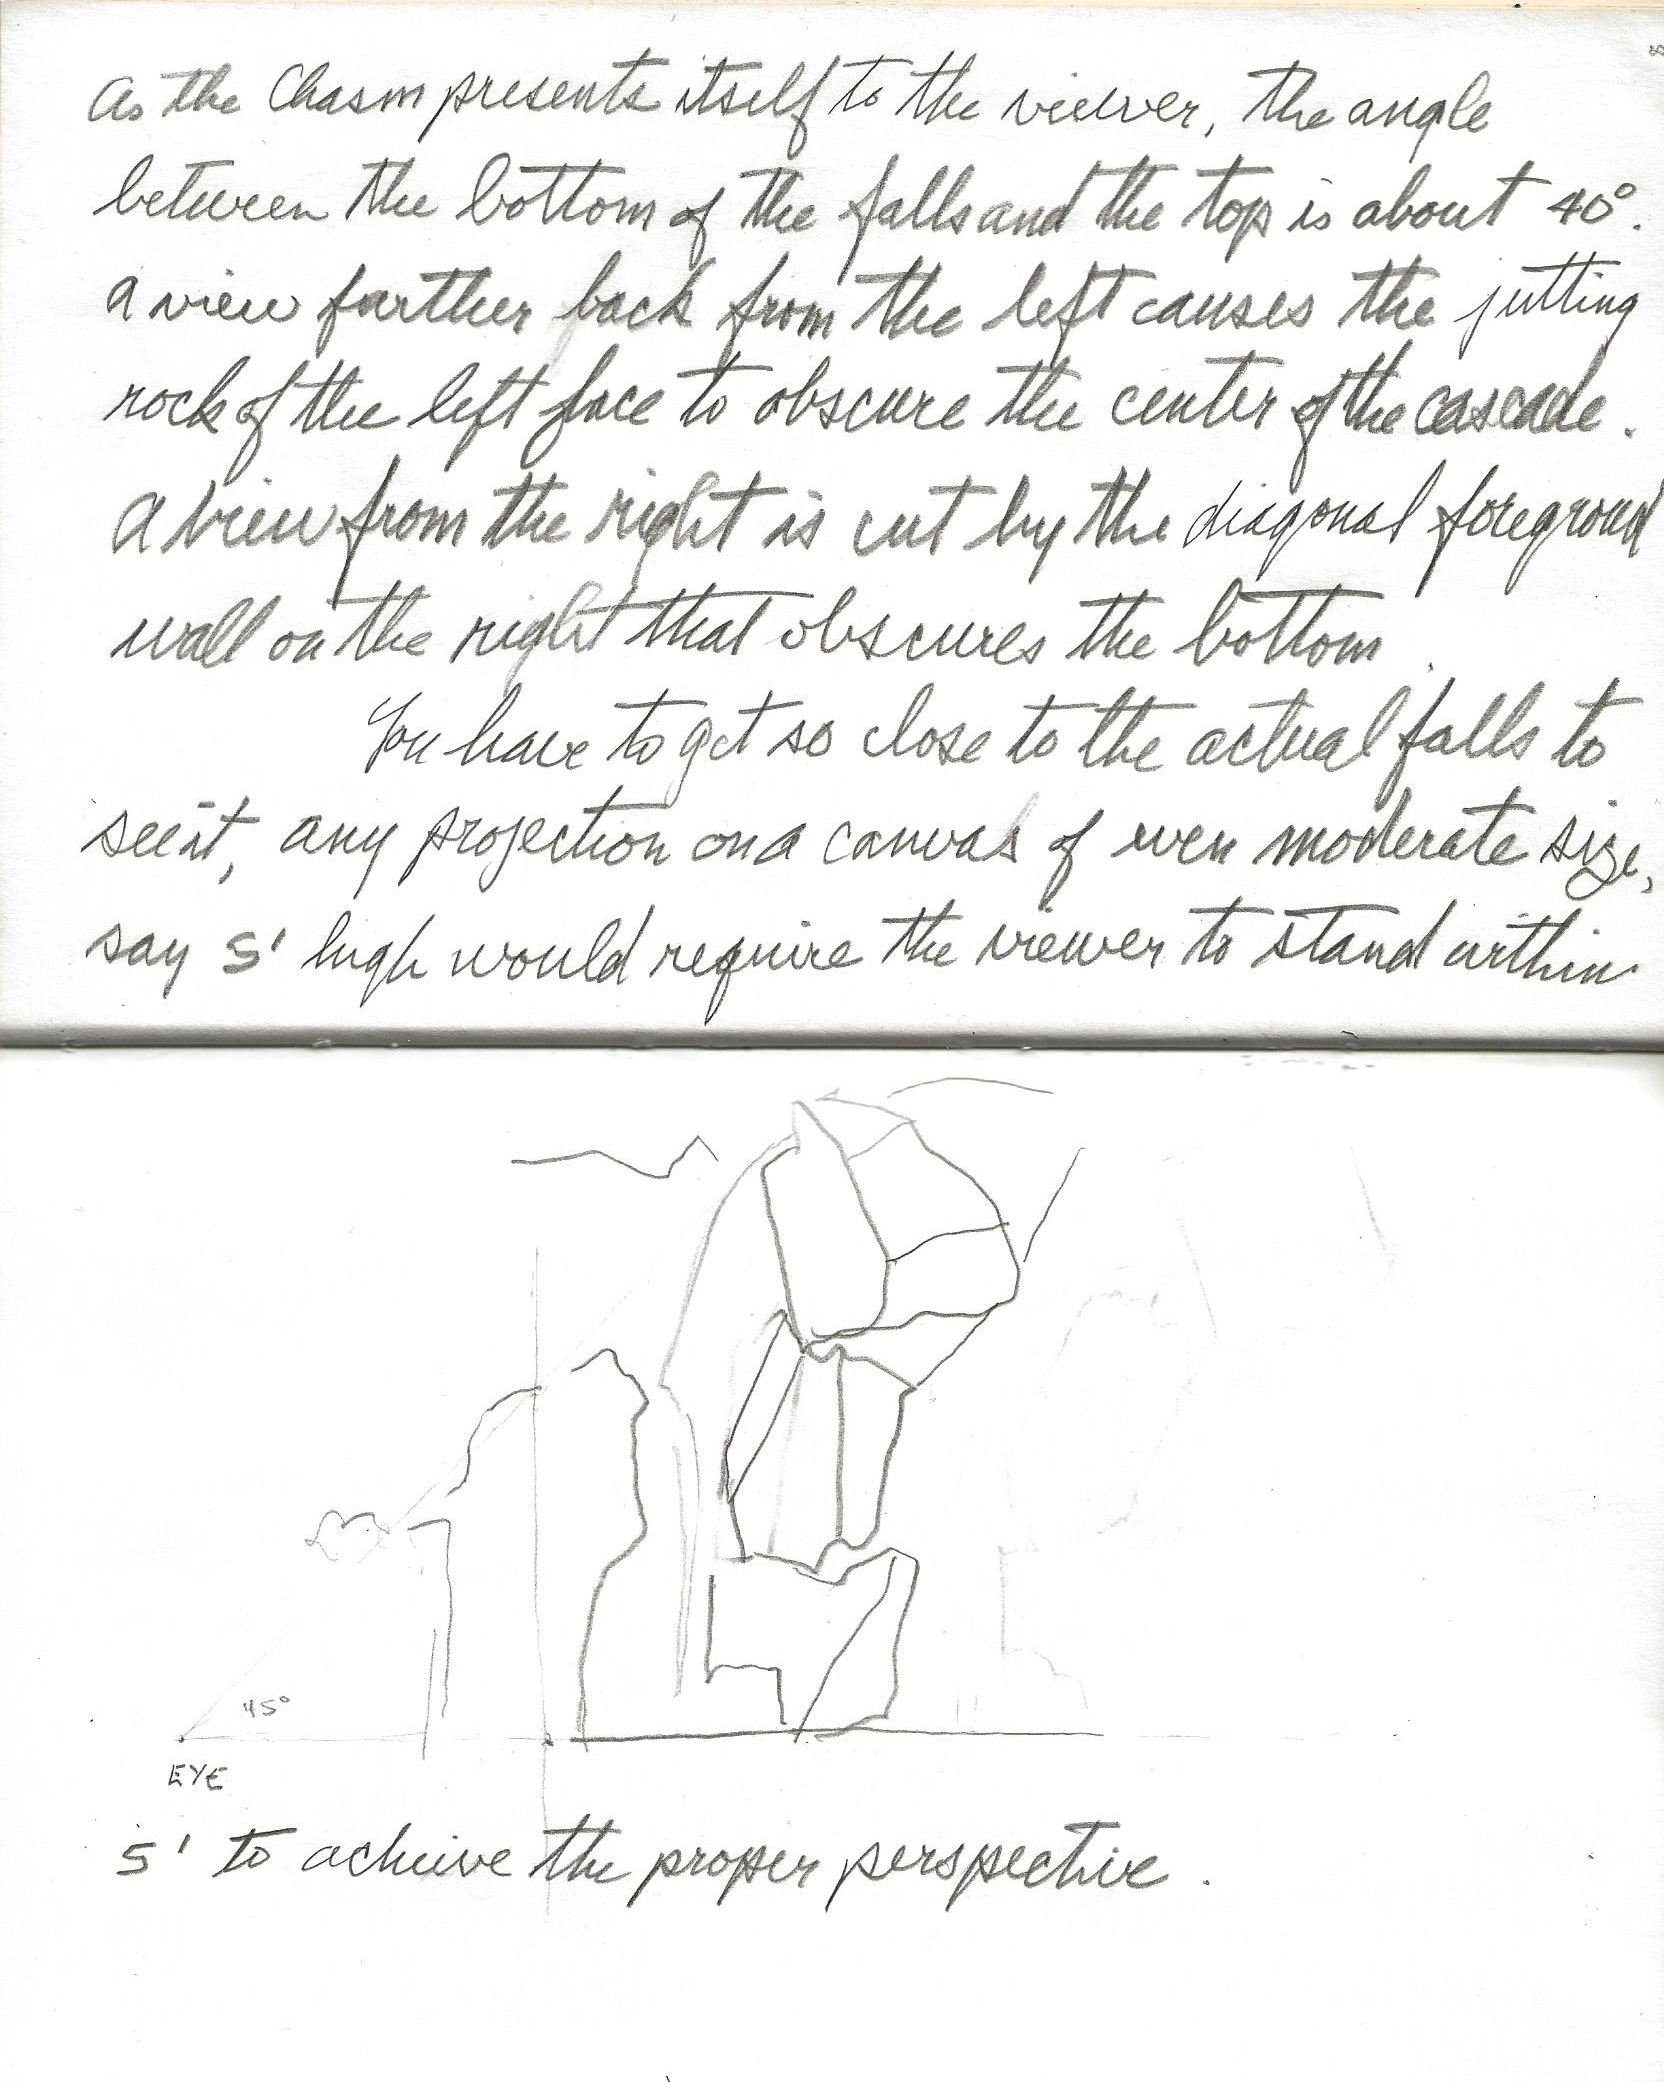 As the Chasm presents itself to the viewer, the angle
between the bottom of the falls and the top is about 40°.
A view farther back from the left causes the jutting
rock of the left face to obscure the center of the cascade.
A view from the right is cut by the diagonal foreground
wall on the right that obscures the bottom.
You have to get so close to the actual falls to
see it, any projection on a canvas of even moderate size,
say 5' high would require the viewer to stand within
45°
EYE
5' to acheive the proper perspective.